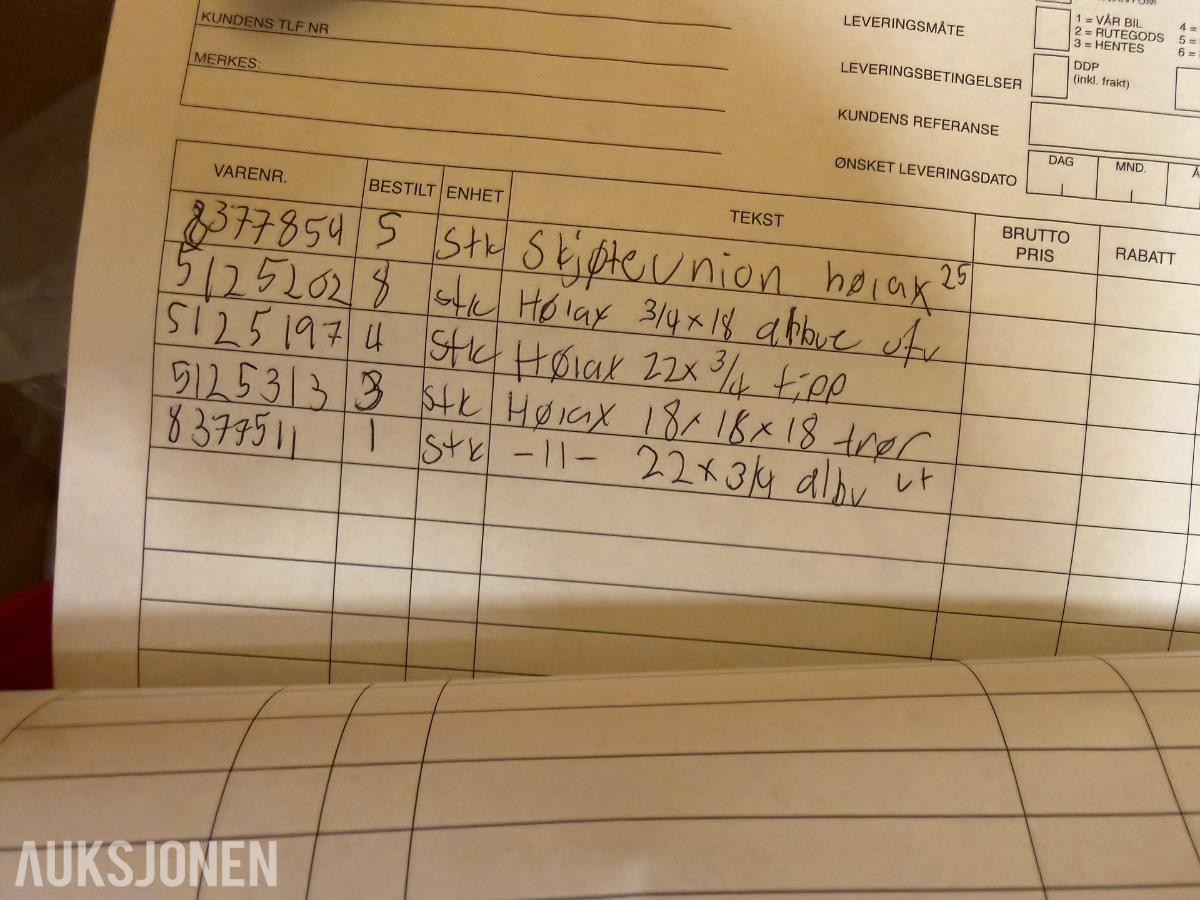 KUNDENS TLF.NR
MERKES:
LEVERINGSMÅTE
1 = VÅR BIL 4 =
2 = RUTEGODS 5 =
3 = HENTES 6 =
LEVERINGSBETINGELSER
DDP
(inkl. frakt)
KUNDENS REFERANSE
ØNSKET LEVERINGSDATO DAG MND. Å
VARENR. BESTILT ENHET TEKST BRUTTO PRIS RABATT
8377854 5 Stk Skjøteunion høiax 25
5125202 8 stk Høiax 3/4 x 18 ufv
5125197 4 Stk Høiax 22x 3/4 tipp
5125313 3 stk Høiax 18x18x18 trør
8377511 1 Stk -11- 22x3/4 albu ut
AUKSJONEN